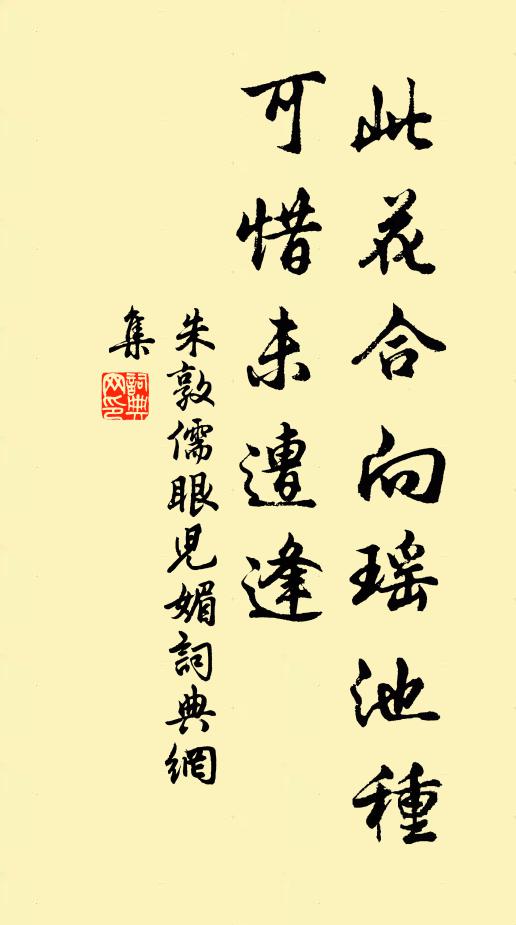 此花合向瑶池種
可惜未遭逢
朱敦儒眼児媚詞典網
集
詞典
网印